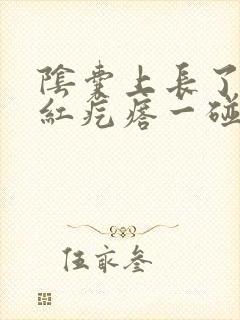 陰囊上長了
紅疙瘩一碰
伍家叁